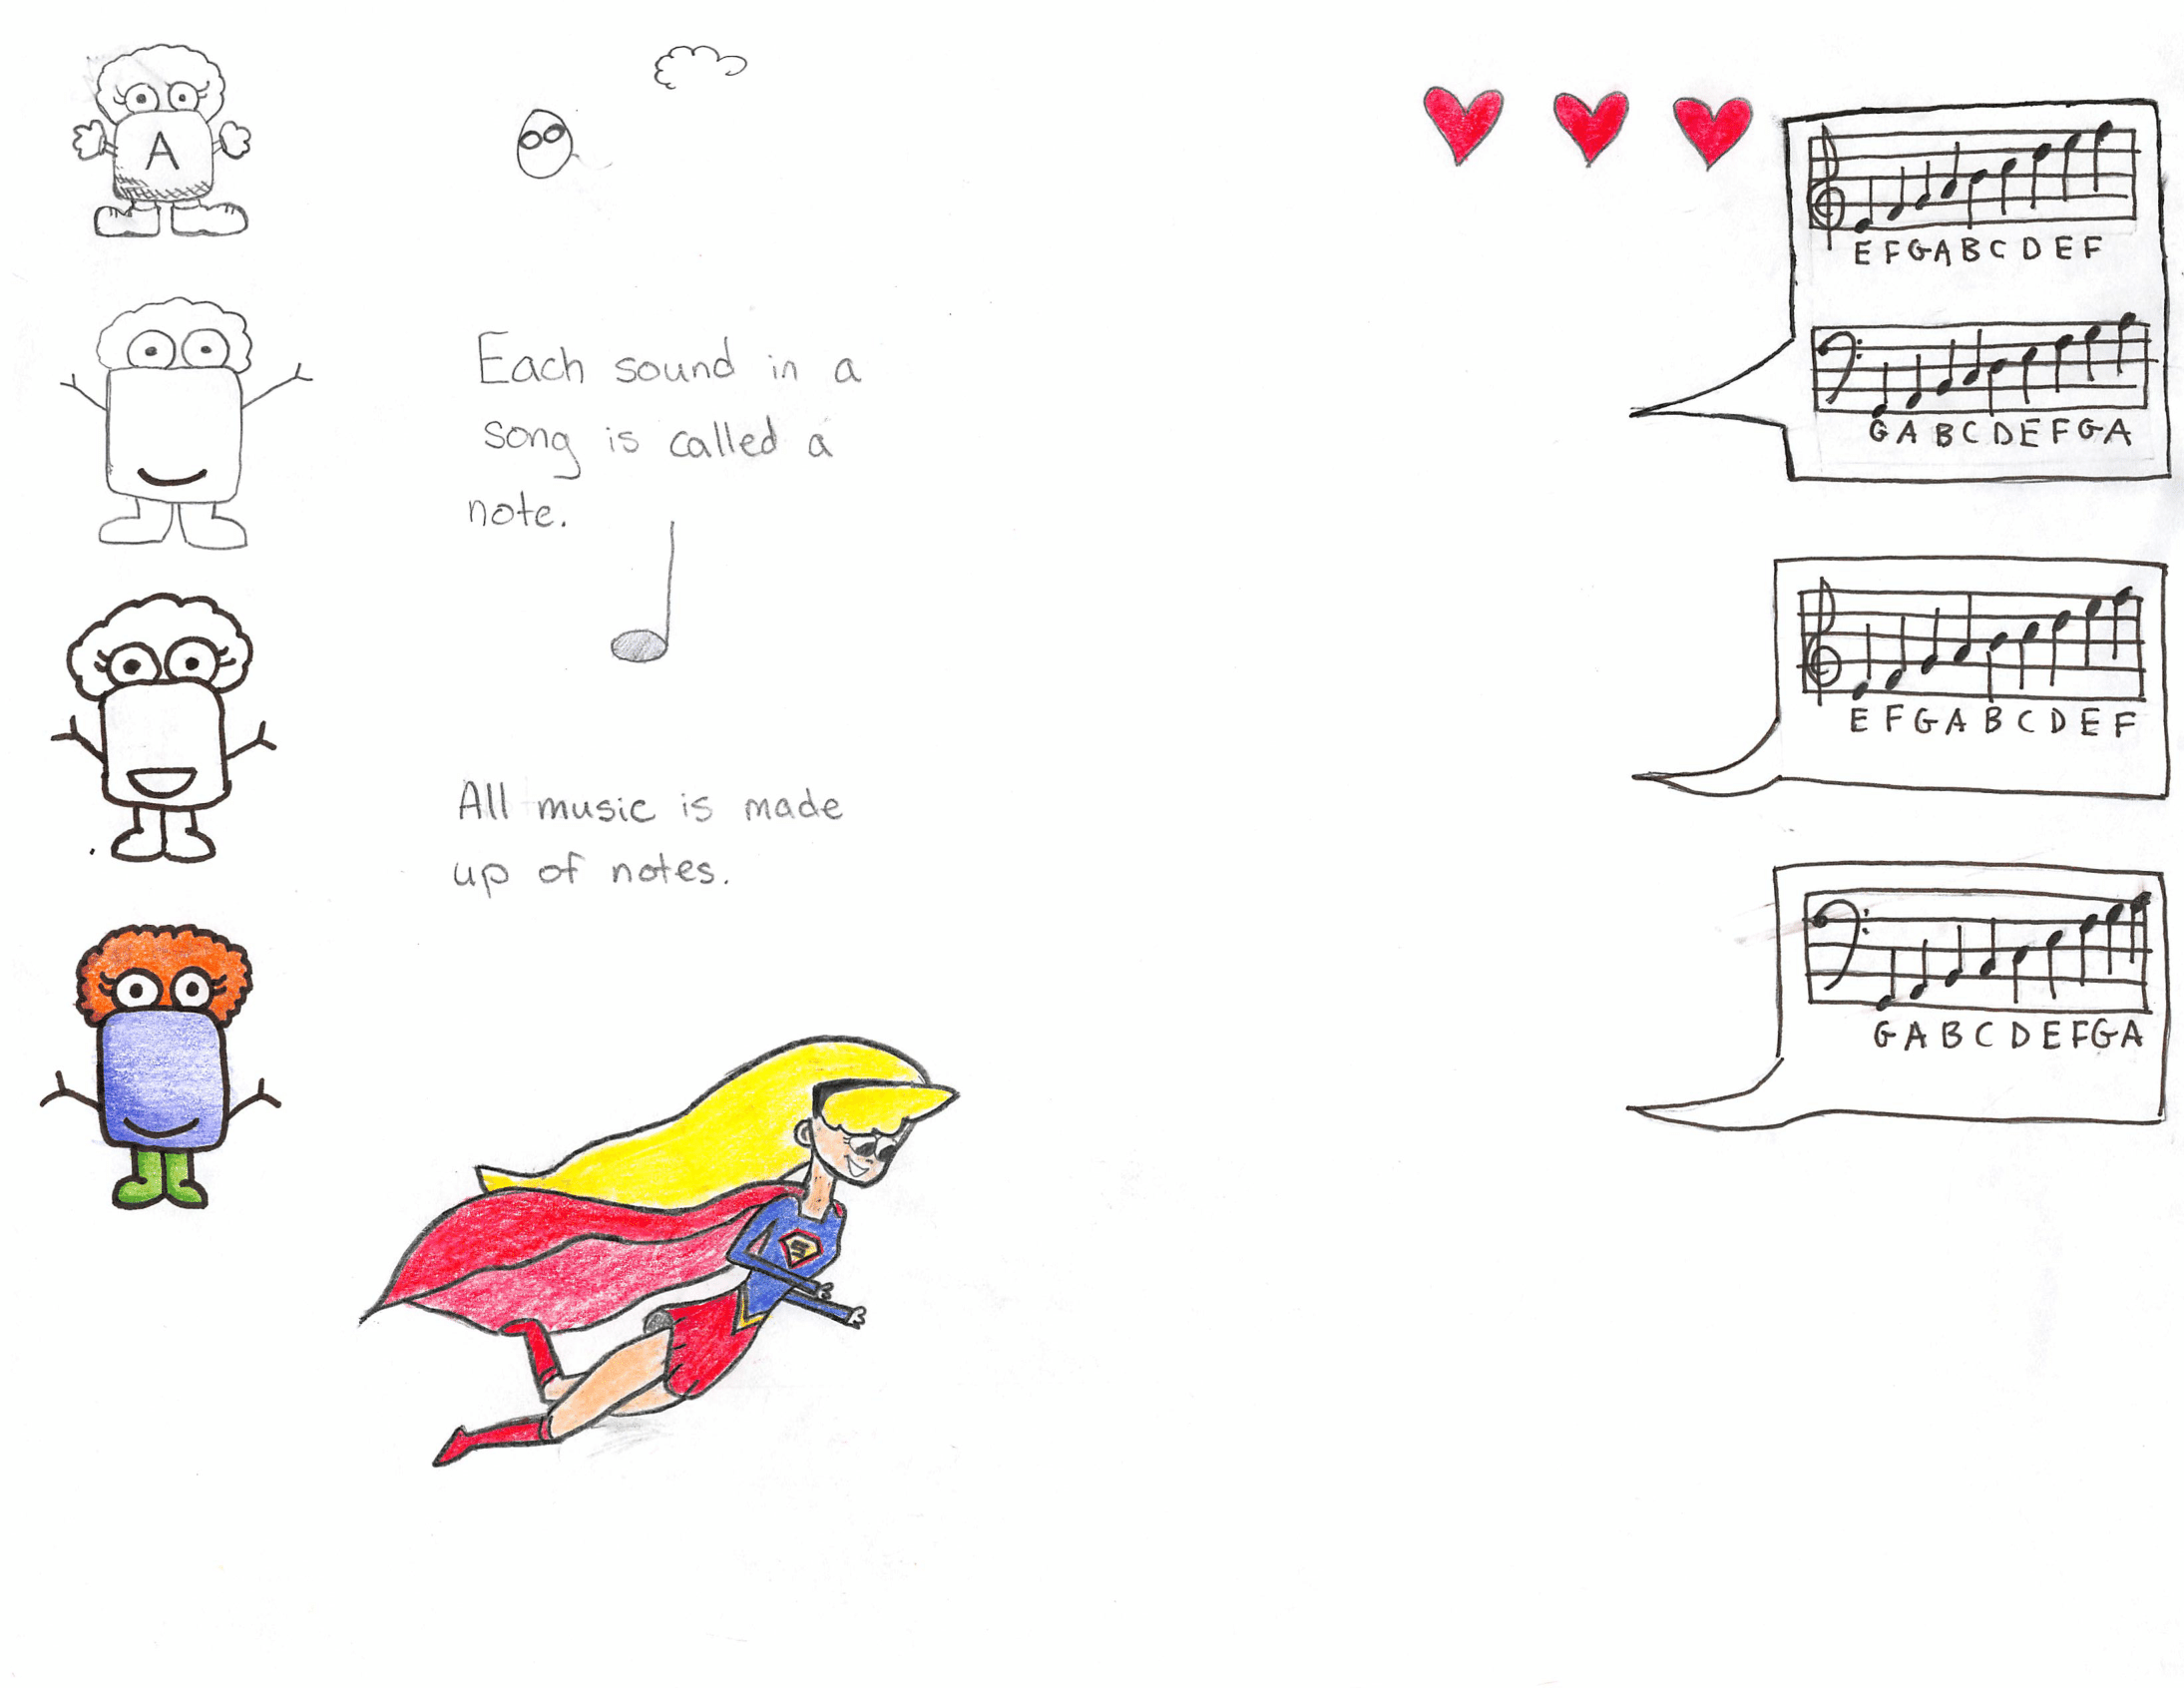 A
Each sound in a
song is called a
note.
All music is made
up of notes.
S
E F G A B C D E F
G A B C D E F G A
E F G A B C D E F
G A B C D E F G A